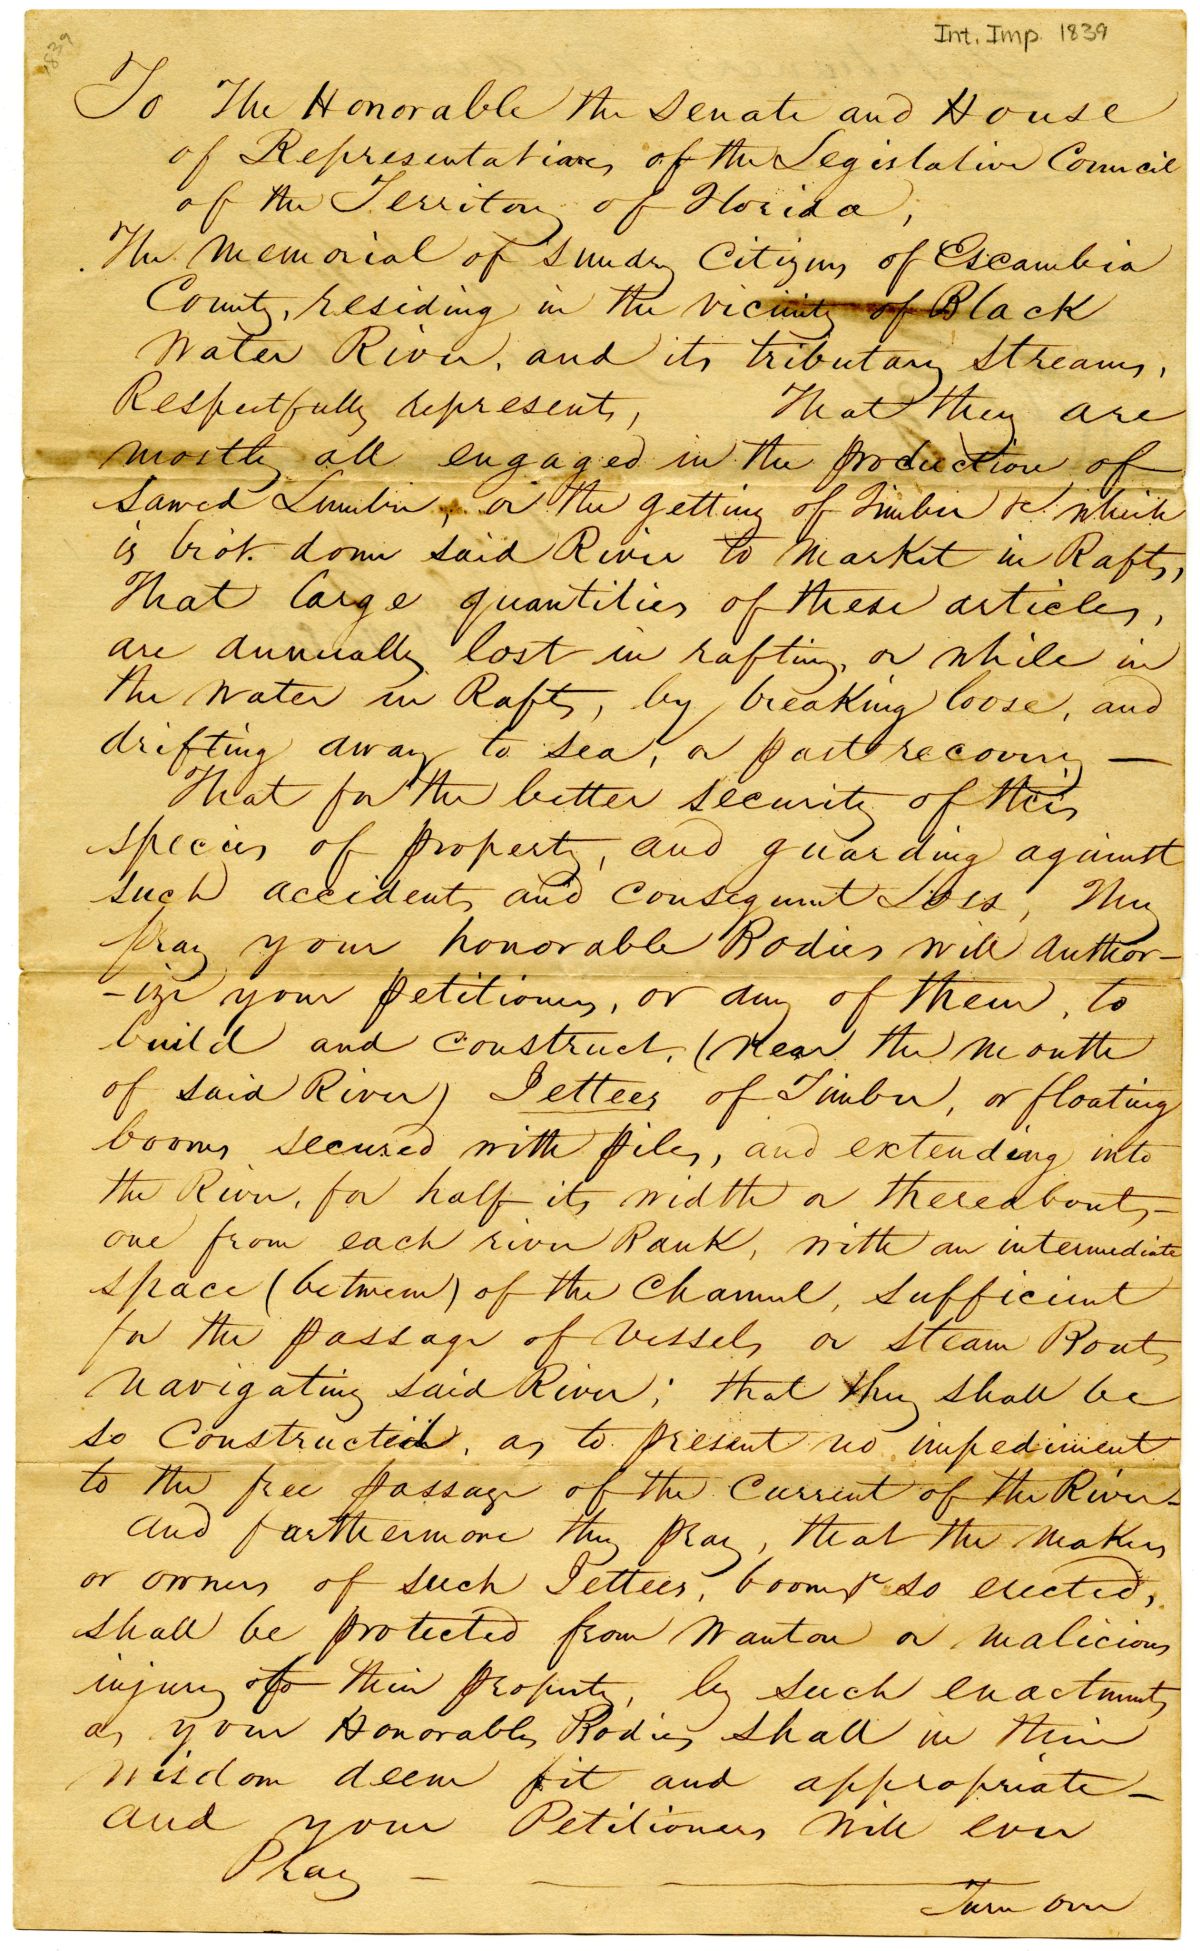 Int. Imp. 1839
1839
To The Honorable the Senate and House
of Representatives of the Legislative Council
of the Territory of Florida,
The Memorial of Sundry Citizens of Escambia
County, residing in the vicinity of Black
Water River, and its tributary streams,
Respectfully represents, That they are
mostly all engaged in the production of
Sawed Lumber, or the getting of Timber &c which
is brot. down said River to Market in Rafts,
That large quantities of these articles,
are annually lost in rafting, or while in
the water in Rafts, by breaking loose, and
drifting away to sea, or past recovery —
That for the better security of this
species of property, and guarding against
such accidents and consequent Loss, They
pray your honorable Bodies will author-
-ize your petitioners, or any of them, to
build and construct, (near the mouth
of said River) Jettees of Timber, or floating
booms secured with piles, and extending into
the River, for half its width or thereabouts—
one from each river Bank, with an intermediate
space (between) of the Channel, sufficient
for the passage of vessels or steam Boats
navigating said River; that they shall be
so constructed, as to present no impediment
to the free passage of the Current of the River—
And furthermore they pray, that the makers
or owners of such Jettees, booms &c so erected,
shall be protected from wanton or malicious
injury to their property, by such enactments
as your Honorable Bodies shall in their
wisdom deem fit and appropriate—
And your Petitioners will ever
Pray —
Turn over